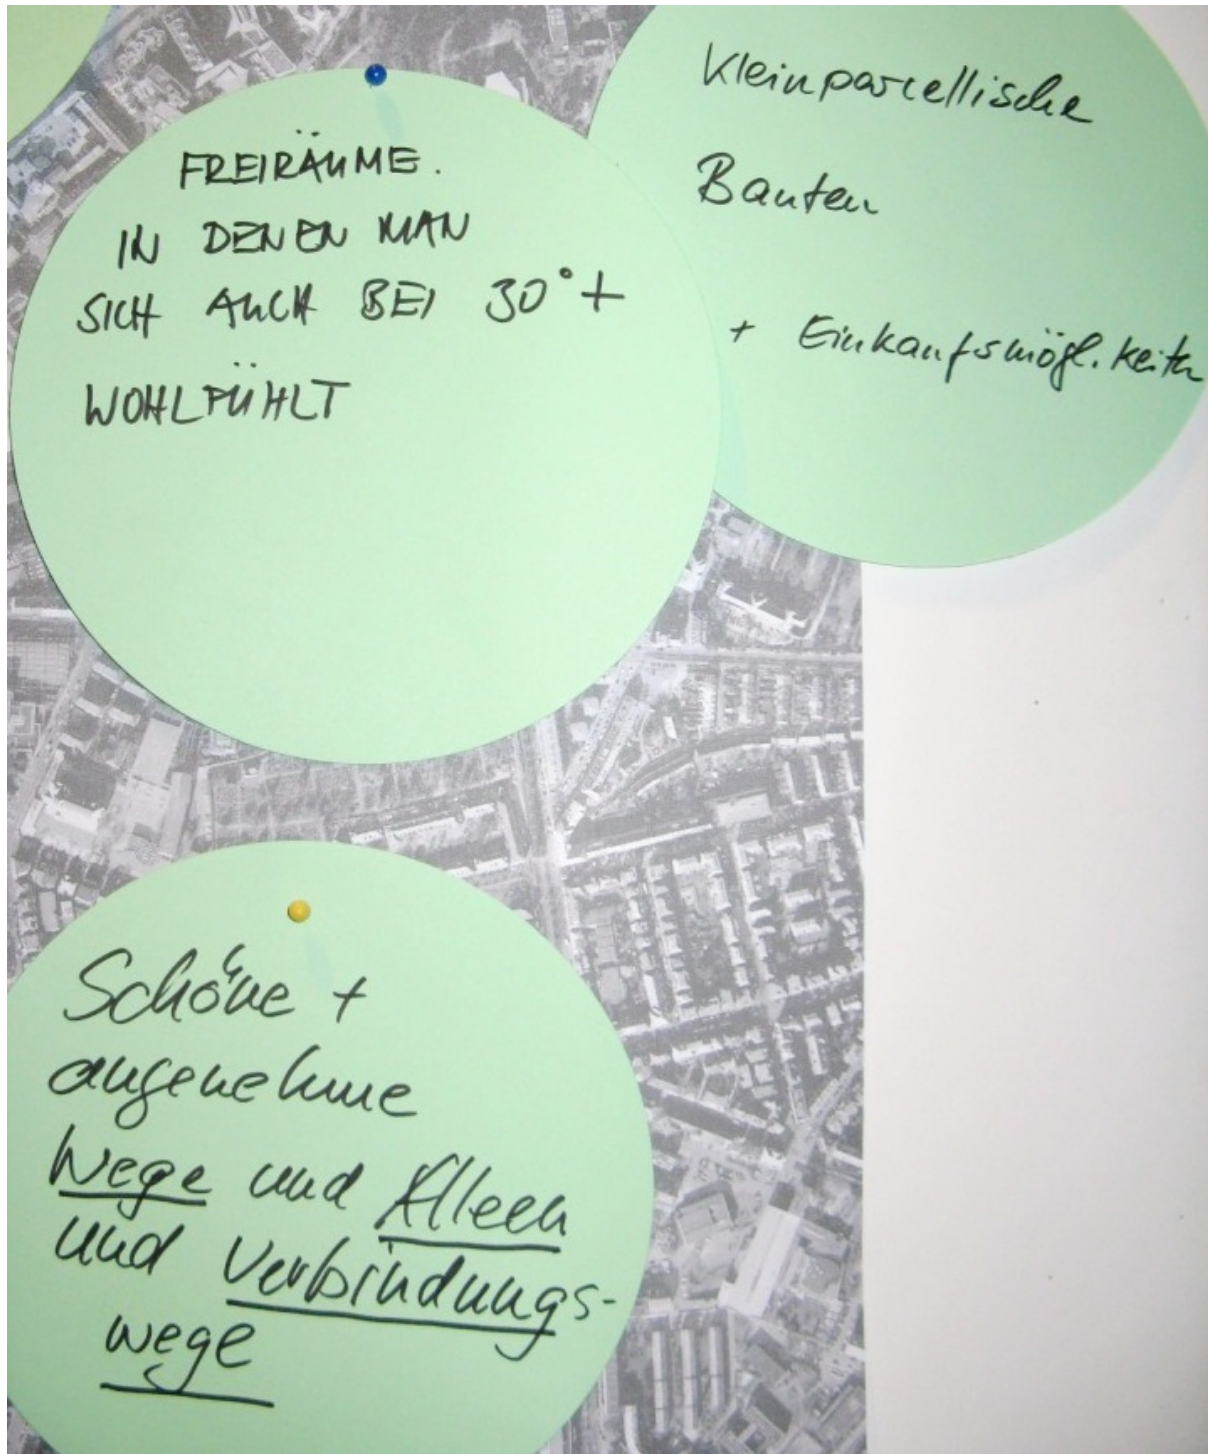 FREIRÄUME.
IN DENEN MAN
SICH AUCH BEI 30°+
WOHLFÜHLT
Kleinparcellische
Bauten
+ Einkaufsmögl.keitn
Schöne +
angenehme
Wege und Alleen
und Verbindungs-
wege